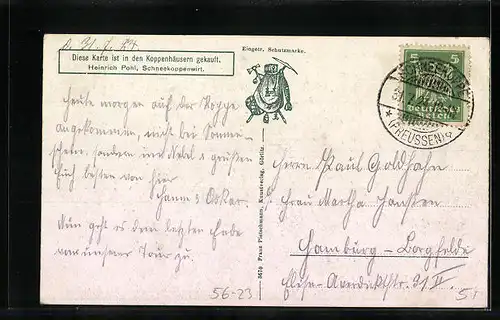 d. 31.7.27.
Diese Karte ist in den Koppenhäusern gekauft.
Heinrich Pohl, Schneekoppenwirt.
Eingetr. Schutzmarke.
5 5
Deutsches
Reich
(PREUSSEN)
Heute morgen auf der Koppe
angekommen, nicht bei Sonnen-
schein, sondern im Nebel & grüßen
Euch bestens von hier
Hanni & Oskar.
Nun geht es dem letzten Ende
von unserer Tour zu.
5610 Franz Pietschmann, Kunstverlag, Görlitz.
Herrn Paul Goldhahn
Frau Martha
Hamburg - Borgfelde
31 II
56-23